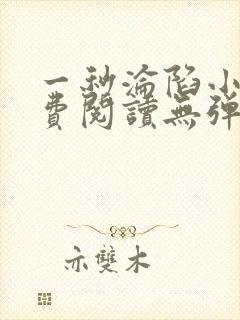 一秒淪陷小
費閱讀無彈
亦雙木